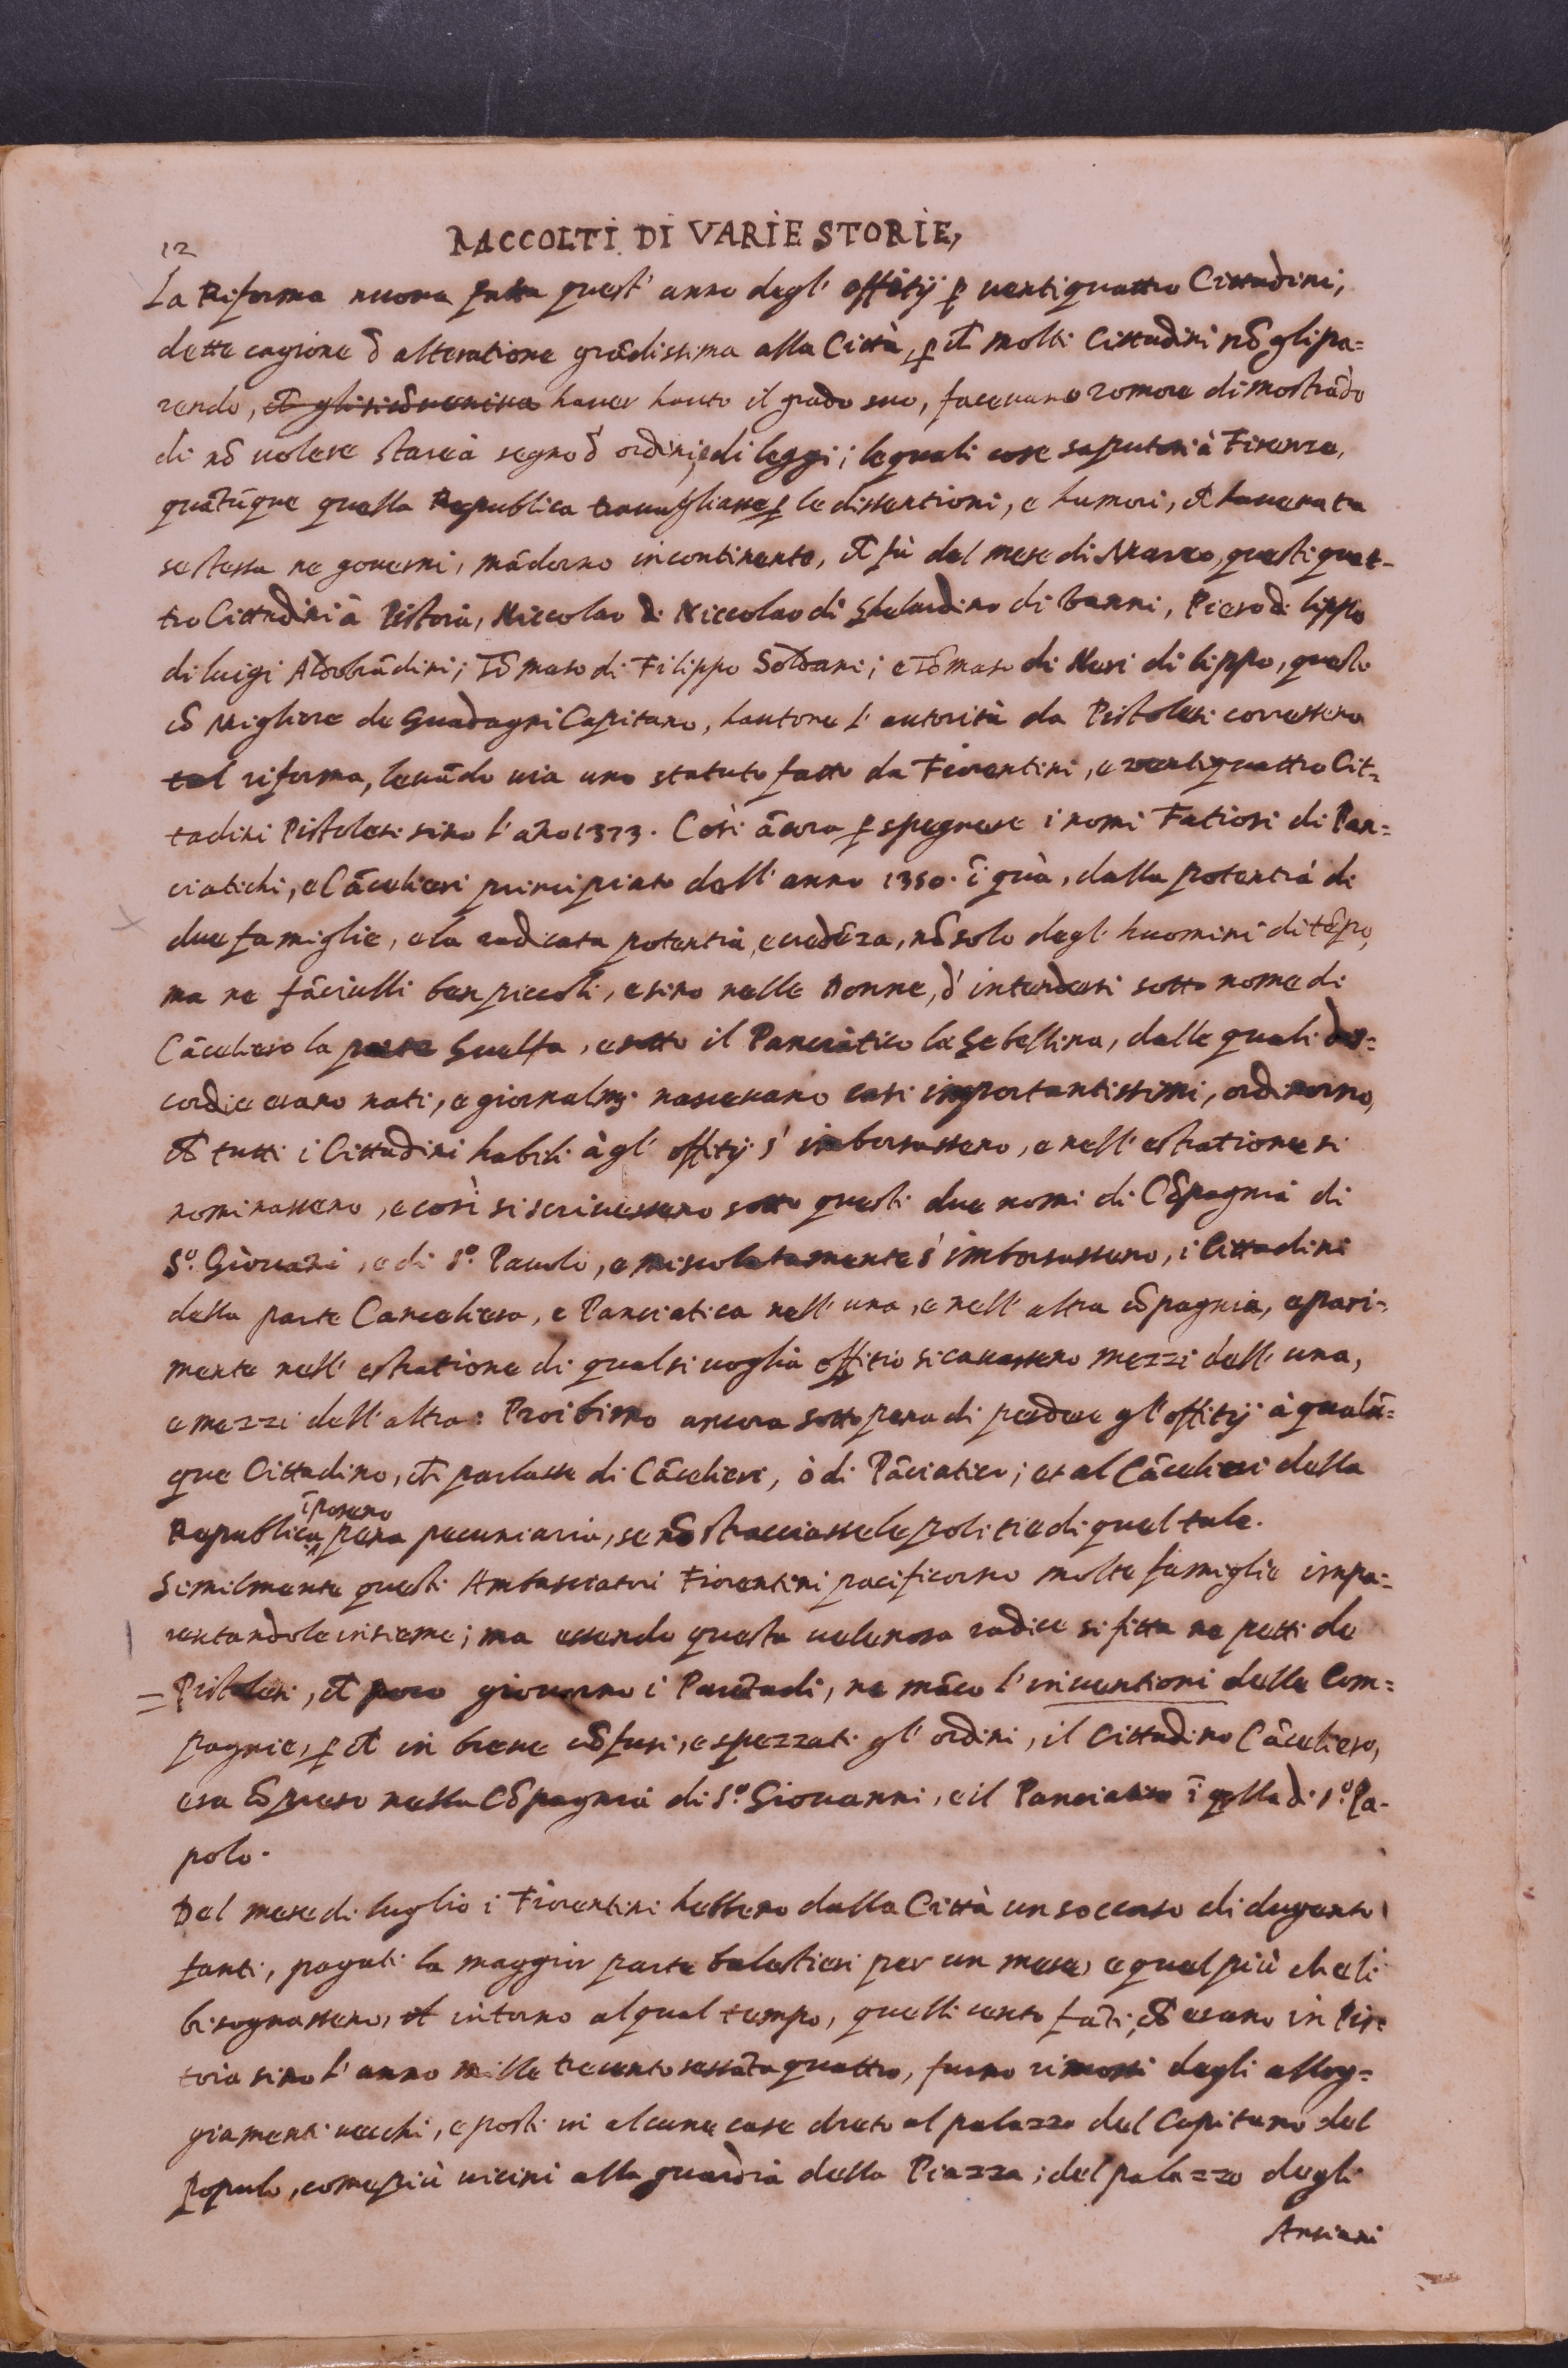 RACCOLTI DI VARIE STORIE,
12
La Riforma nuova fatta quest' anno degl' offitij ꝑ uentiquattro Cittadini,
dette cagione d̄ alteratione grādissima alla Città, ꝑ ch̄ molti Cittadini nō gli pa=
rendo, hauer hauto il grado suo, faceuano romore dimostrādo
di nō uolere stare à segno d̄ ordini, e di leggi; le quali cose saputosi à Firenze,
quātūque quella Republica trauagliasse ꝑ le dissentioni, e humori, ch̄ haueua tra
se stessa ne gouerni, mādorno incontinente, ch̄ fù del mese di Marzo, questi quat-
tro Cittadini à Pistoia, Niccolao di Niccolao di Gherardino di Vanni, Piero di lippo
di luigi Aldobrādini; Tōmaso di Filippo Soldani; e Tōmaso di Neri di lippo, questo
cō Migliore de Guadagni Capitano, hautone l' autorità da Pistolesi corressero
tal riforma, leuādo uia uno statuto fatto da Fiorentini, e uentiquattro Cit=
tadini Pistolesi sino l' año 1373. Così ācora ꝑ spegnere i nomi Fatiosi di Pan=
ciatichi, e Cācelieri principiato dall' anno 1350. ī quà, dalla potentia di
due famiglie, e la radicata potentia, e credēza, nō solo degl' huomini di tēpo,
ma ne fāciulli ben piccoli, e sino nelle Donne, d' intendersi sotto nome di
Cāceliero la parte Guelfa, e sotto il Panciatico la Gebellina, dalle quali dis=
cordie erano nati, e giornalmṭ nasceuano casi importantissimi, ordinorno,
ch̄ tutti i Cittadini habili à gl' offitij s' imborsassero, e nell' estratione si
nominassero, e così si scriuessero sotto questi due nomi di Cōpagnia di
S.º Giouāni, e di S.º Pauolo, e miscolatamente s' imborsassero, i Cittadini
della parte Canceliera, e Panciatica nell' una, e nell' altra cōpagnia, e pari-
mente nell' estratione di qualsi uoglia offitio si cauassero mezzi dell' una,
e mezzi dell' altra: Proibirno ancora sotto pena di perdere gl' offitij à qualū=
que Cittadino, ch̄ parlasse di Cācelieri, ò di Pāciatici; et al Cācelieri della
Republica īposeno pena pecuniaria, se nō stracciasse le politie di quel tale.
Similmente questi Ambasciatori Fiorentini pacificorno molte famiglie impa=
rentandole insieme; ma essendo questa uelenosa radice si fitta ne petti de
= Pistolesi, ch̄ poco giouorno i Parētadi, ne māco l' inuentioni delle Com=
pagnie, ꝑ ch̄ in breue cōfusi, e spezzati gl' ordini, il Cittadino Cāceliero,
era cōpreso nella Cōpagnia di S.º Giouanni, e il Panciatico ī qlla di S.º Pa-
polo.
Del mese di luglio i Fiorentini hebbeno dalla Città un soccorso di dugento
fanti, pagati la maggior parte balestieri per un mese, e quel più che li
bisognasseno, et intorno al qual tempo, quelli cento fāti, ch̄ erano in Pis=
toia sino l' anno mille trecento sessātaquattro, furno rimossi degli allog=
giamenti uecchi, e posti in alcune case dreto al palazzo del Capitano del
Popolo, come più uicini alla guardia della Piazza; del palazzo degli
Antiani